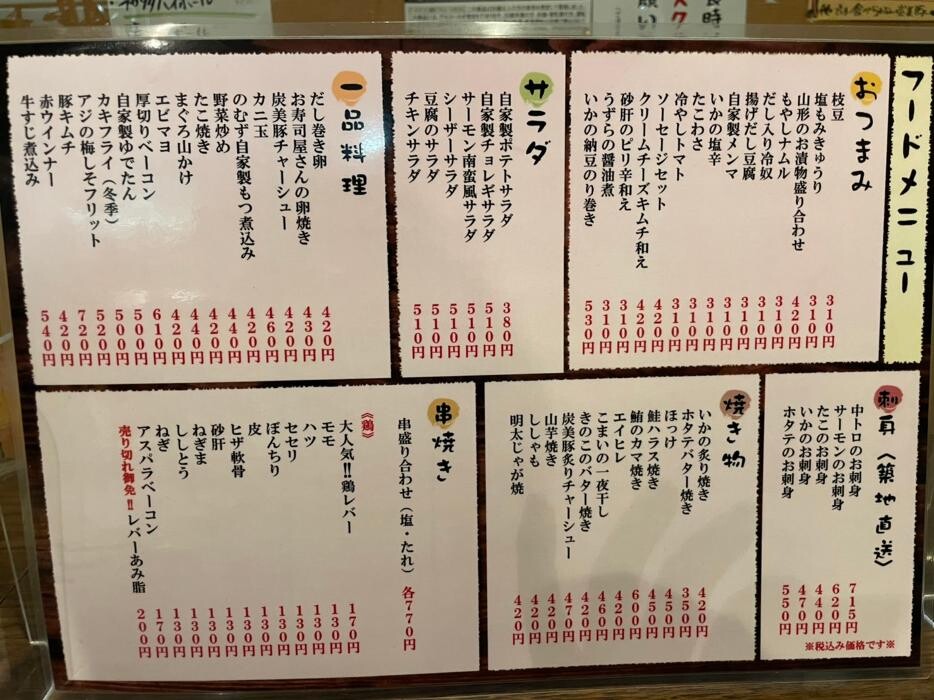 フードメニュー
おつまみ
枝豆 310円
塩もみきゅうり 310円
山形のお漬物盛り合わせ 420円
もやしナムル 310円
だし入り冷奴 310円
揚げだし豆腐 310円
自家製メンマ 310円
いかの塩辛 310円
たこわさ 310円
冷やしトマト 310円
ソーセージセット 420円
クリームチーズキムチ和え 420円
砂肝のピリ辛和え 310円
うずらの醤油煮 310円
いかの納豆のり巻き 530円
サラダ
自家製ポテトサラダ 380円
自家製チョレギサラダ 510円
サーモン南蛮風サラダ 510円
シーザーサラダ 510円
豆腐のサラダ 510円
チキンサラダ 510円
一品料理
だし巻き卵 420円
お寿司屋さんの卵焼き 430円
炭美豚チャーシュー 420円
カニ玉 460円
のむず自家製もつ煮込み 420円
野菜炒め 440円
たこ焼き 420円
まぐろ山かけ 440円
エビマヨ 420円
厚切りベーコン 610円
自家製ゆでたん 500円
カキフライ（冬季） 500円
アジの梅しそフリット 520円
豚キムチ 720円
赤ウインナー 420円
牛すじ煮込み 540円
刺身〈築地直送〉
中トロのお刺身 715円
サーモンのお刺身 620円
たこのお刺身 440円
いかのお刺身 470円
ホタテのお刺身 550円
※税込み価格です※
焼き物
いかの炙り焼き 420円
ホタテバター焼き 350円
ほっけ 450円
鮭ハラス焼き 450円
鮪のカマ焼き 600円
エイヒレ 420円
こまいの一夜干し 460円
きのこのバター焼き 420円
炭美豚炙りチャーシュー 470円
山芋焼き 420円
ししゃも 420円
明太じゃが焼 420円
串焼き
串盛り合わせ（塩・たれ） 各770円
《鶏》
大人気!!鶏レバー 170円
モモ 130円
ハツ 130円
セセリ 130円
ぼんちり 130円
皮 130円
ヒザ軟骨 130円
砂肝 130円
ねぎま 130円
ししとう 130円
ねぎ 130円
アスパラベーコン 170円
売り切れ御免!!レバーあみ脂 200円